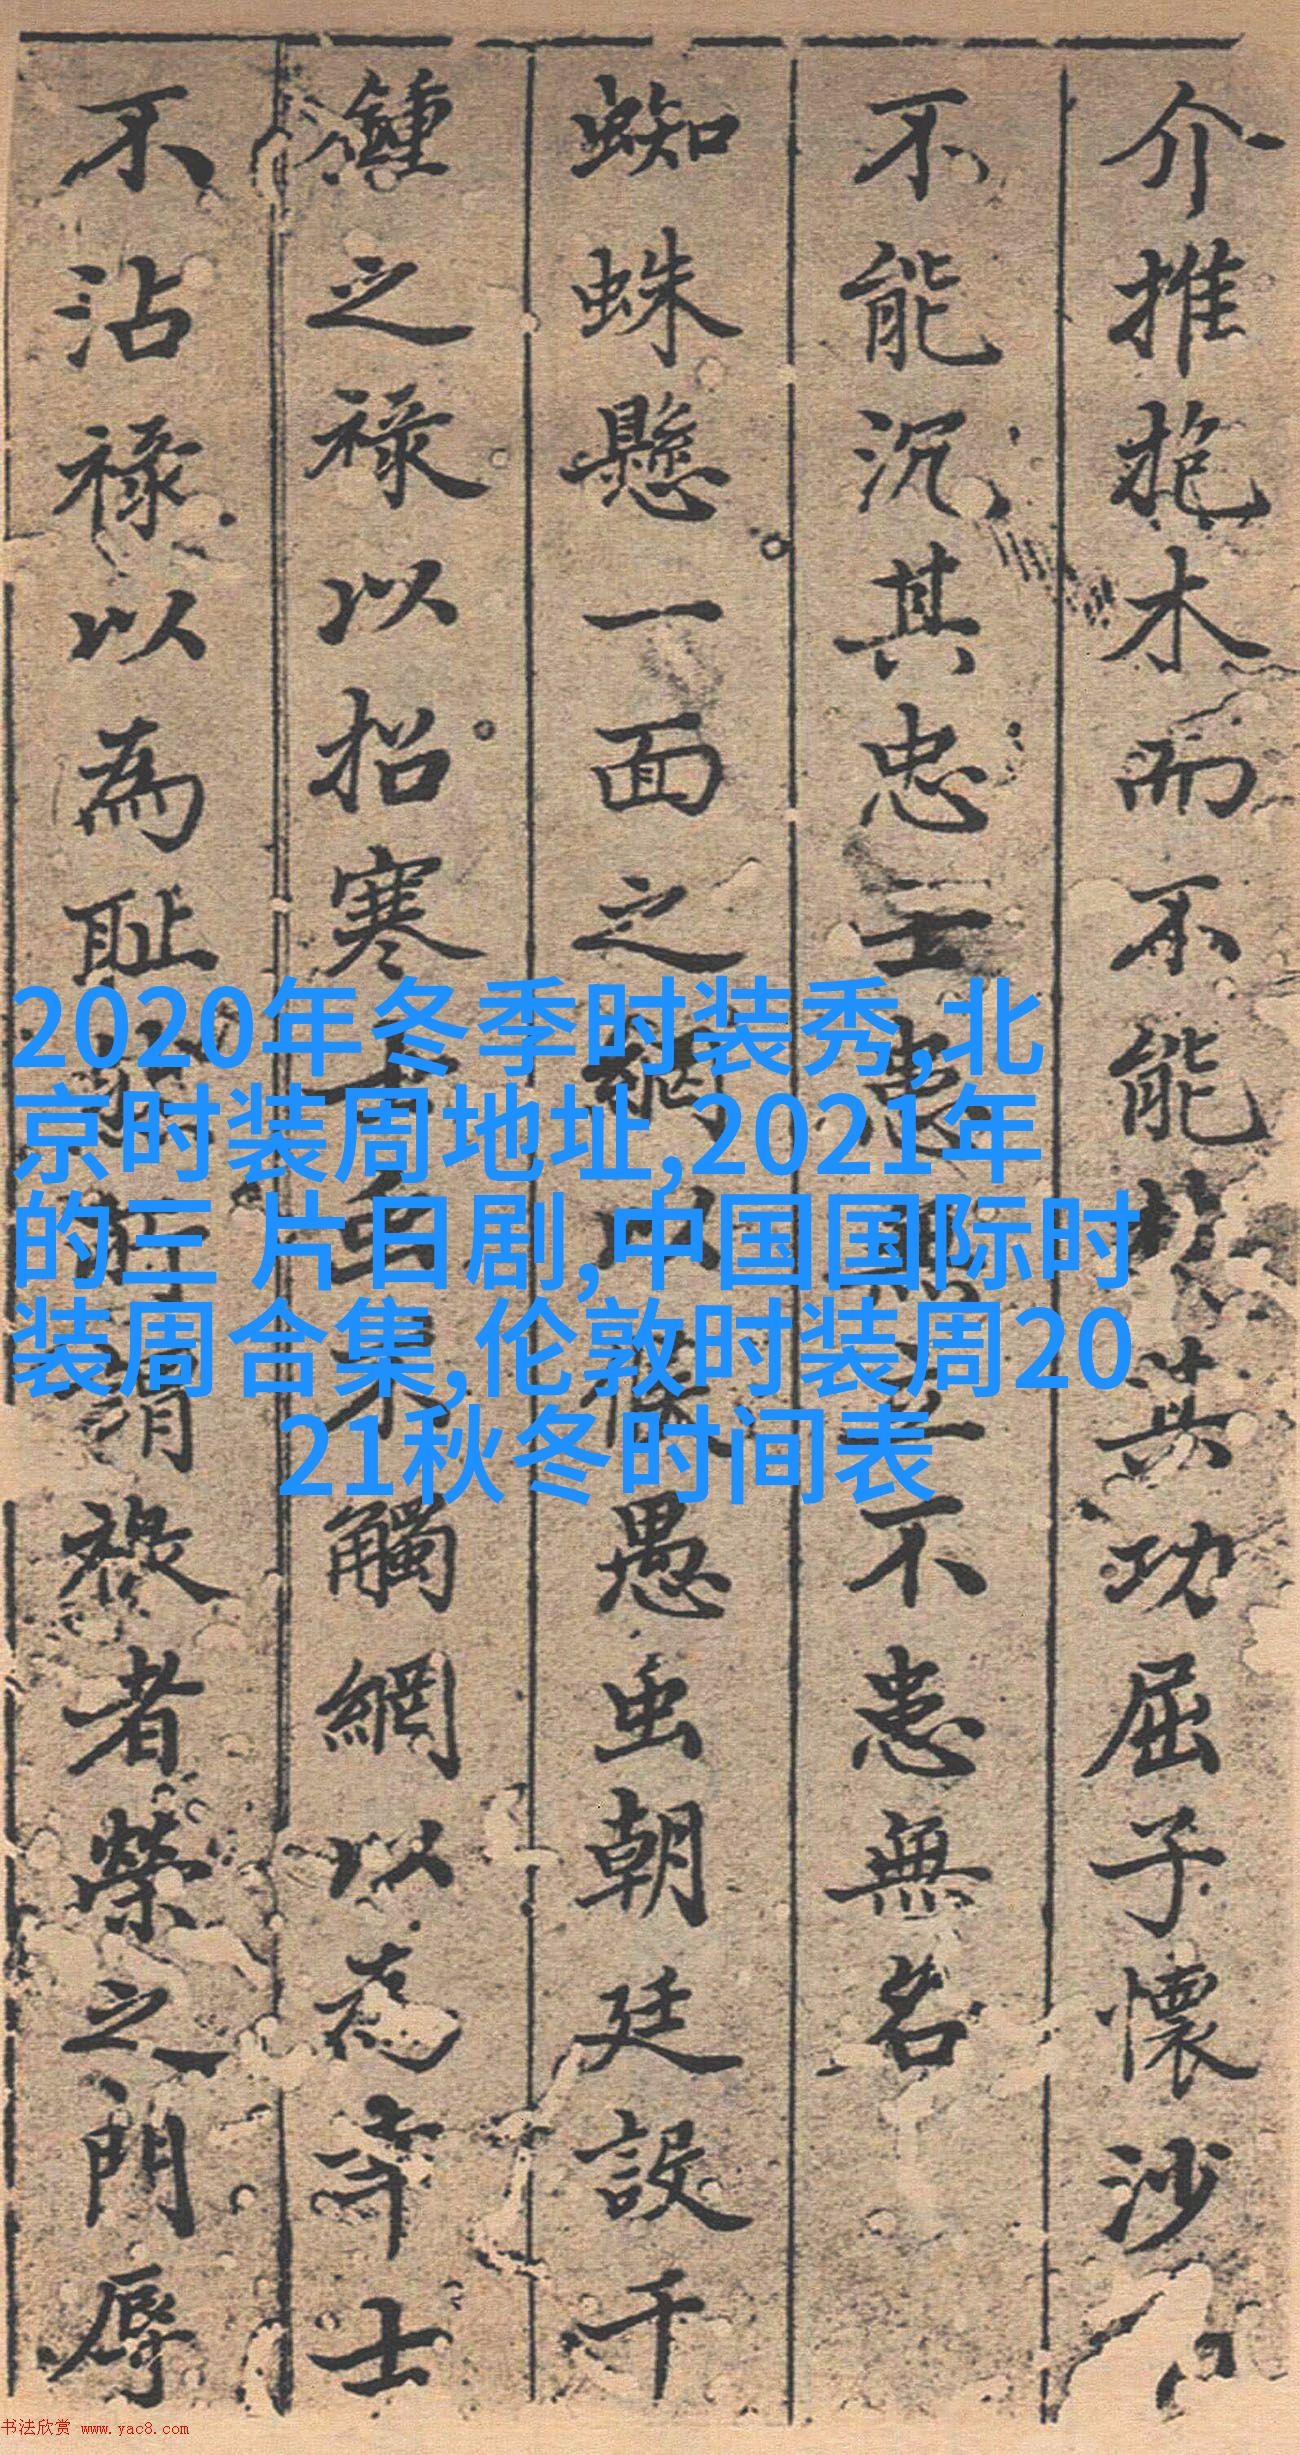 介推抱木而不能其功屈子懷沙
不能沉其忠士患無不患無名
蜘蛛懸一面之網以愚虫朝廷設千
鍾之祿以招寒士虫不觸網以為幸士
不沾祿以為恥謂祿者榮之門辱
2020年冬季时装秀,北
京时装周地址,2021年
的三 片日剧,中国国际时
装周合集,伦敦时装周20
21秋冬时间表
书法欣赏 www.yac8.com